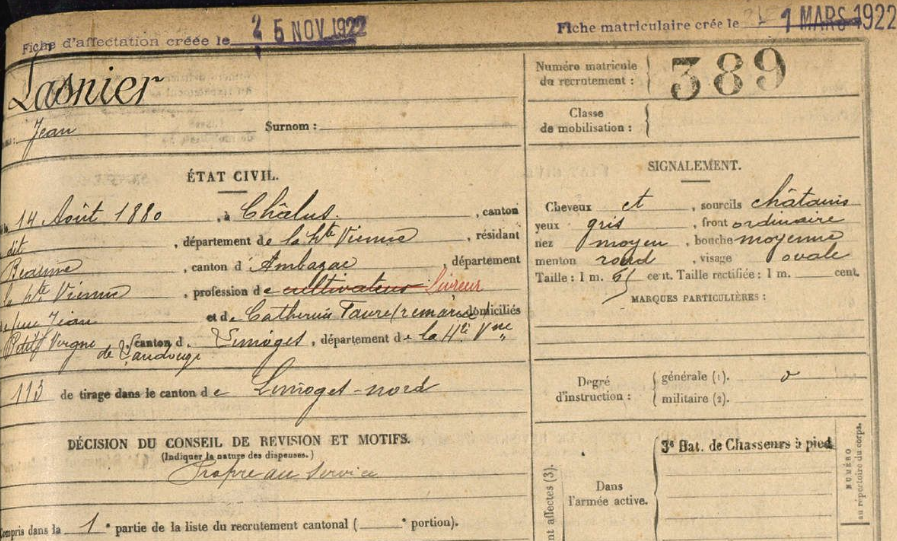 Fiche d'affectation créée le 25 NOV 1922
Fiche matriculaire créée le 1 MARS 1922
Lasnier
Jean Surnom :
ÉTAT CIVIL.
14 Août 1880, à Châlus, canton
dit, département de la Hte Vienne, résidant
Beaune, canton d'Ambazac, département
la Hte Vienne, profession de cultivateur livreur
feu Jean et de Catherine Faure (remariée) domiciliés
Petit Vergne de Landouge, canton de Limoges, département de la Hte Vne
113 de tirage dans le canton de Limoges-nord
DÉCISION DU CONSEIL DE REVISION ET MOTIFS.
(Indiquer la nature des dispenses.)
Propre au service
Compris dans la 1e partie de la liste du recrutement cantonal ( e portion).
Numéro matricule
du recrutement : 389
Classe
de mobilisation :
SIGNALEMENT.
Cheveux et, sourcils châtains
yeux gris, front ordinaire
nez moyen, bouche moyenne
menton rond, visage ovale
Taille : 1 m. cent. Taille rectifiée : 1 m. cent.
MARQUES PARTICULIÈRES :
Degré
d'instruction :
générale (1).
militaire (2).
Dans
l'armée active.
3e Bat. de Chasseurs à pied
NUMÉRO
au répertoire du corps.
nt affectés (3).